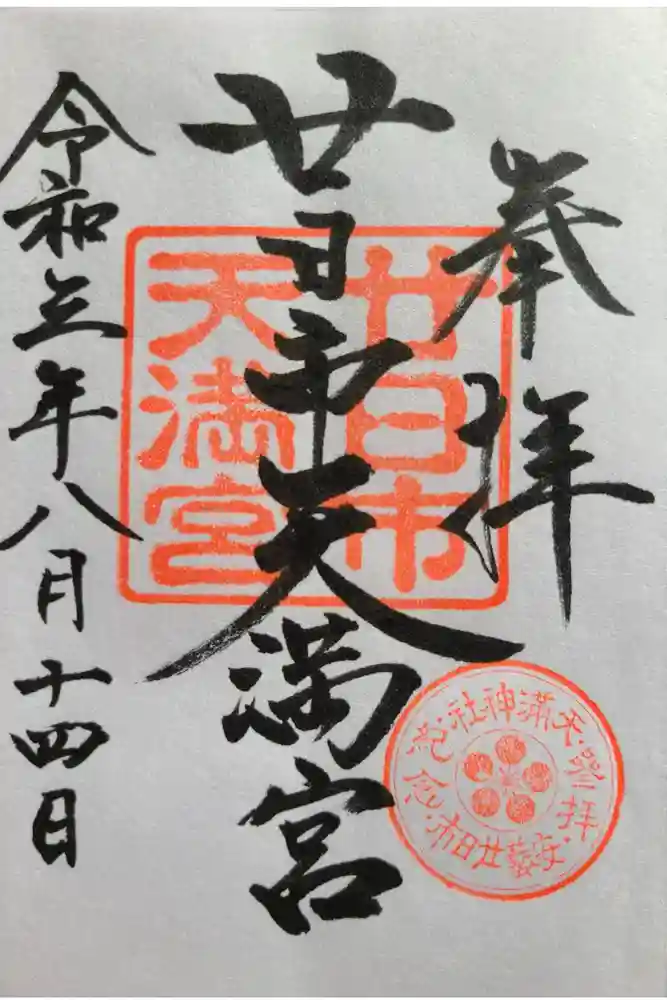 奉拝
廿日市天満宮
令和三年八月十四日
廿日市
天満宮
天満神社
登拝
安藝廿日市
記念